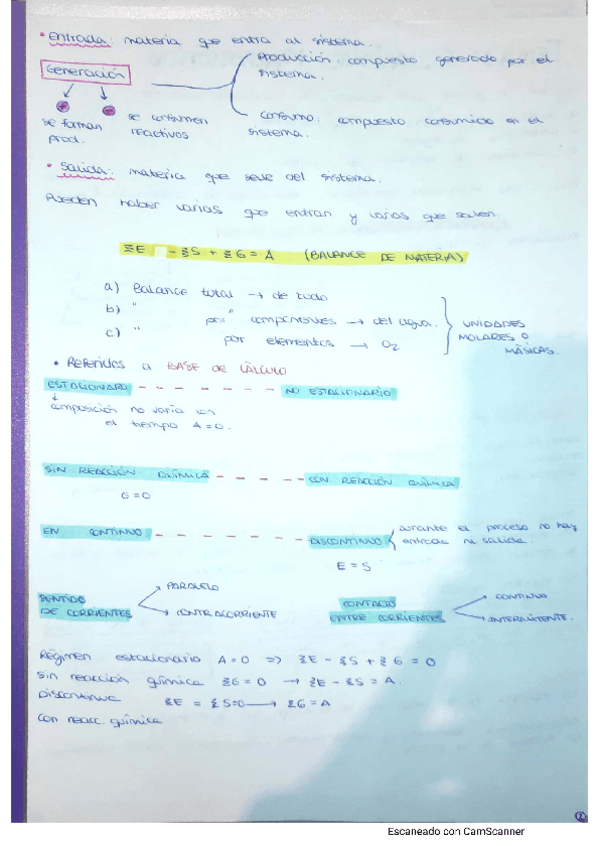 • Entrada: materia que entra al sistema.
Generación
Producción: compuesto generado por el
sistema.
+ -
se forman
prod.
se consumen
reactivos
Consumo: compuesto consumido en el
sistema.
• Salida: materia que sale del sistema.
Pueden haber varias que entran y varias que salen.
ΣE - ΣS + ΣG = A (BALANCE DE MATERIA)
a) Balance total → de todo
b) " por componentes → del agua.
c) " por elementos → O2
UNIDADES
MOLARES O
MÁSICAS.
• Referidos a BASE DE CÁLCULO
ESTACIONARIO - - - - - - - NO ESTACIONARIO
composición no varía con
el tiempo A=0.
SIN REACCIÓN QUÍMICA - - - - - CON REACCIÓN QUÍMICA
G=0
EN CONTINUO - - - - - - - DISCONTINUO
durante el proceso no hay
entrada ni salida.
E = S
SENTIDO
DE CORRIENTES
PARALELO
CONTRACORRIENTE
CONTACTO
ENTRE CORRIENTES
CONTINUO
INTERMITENTE.
Régimen estacionario A=0 => ΣE - ΣS + ΣG = 0
Sin reacción química ΣG=0 → ΣE - ΣS = A.
Discontinuo ΣE = ΣS=0 → ΣG=A
Con reacc. química
2
Escaneado con CamScanner